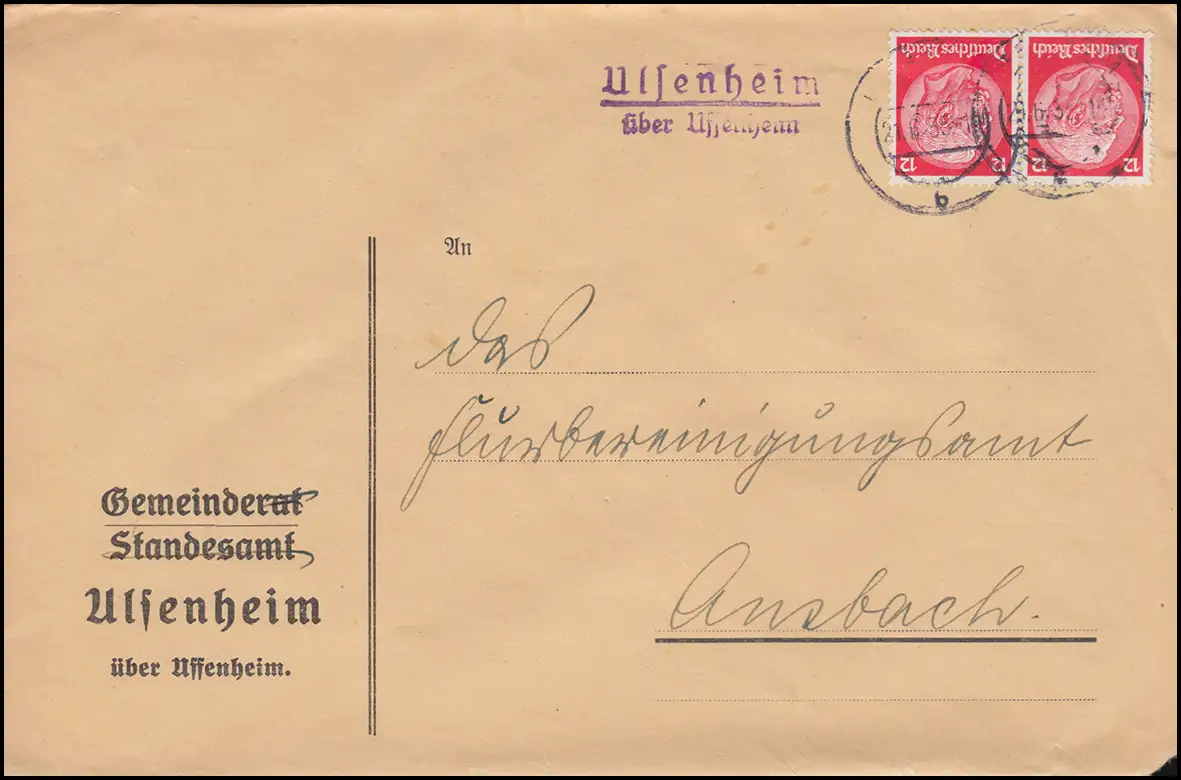 Ulsenheim
über Uffenheim
Deutsches Reich
Deutsches Reich
12
12
b
An
das
Flurbereinigungsamt
Ansbach.
Gemeinderat
Standesamt
Ulsenheim
über Uffenheim.